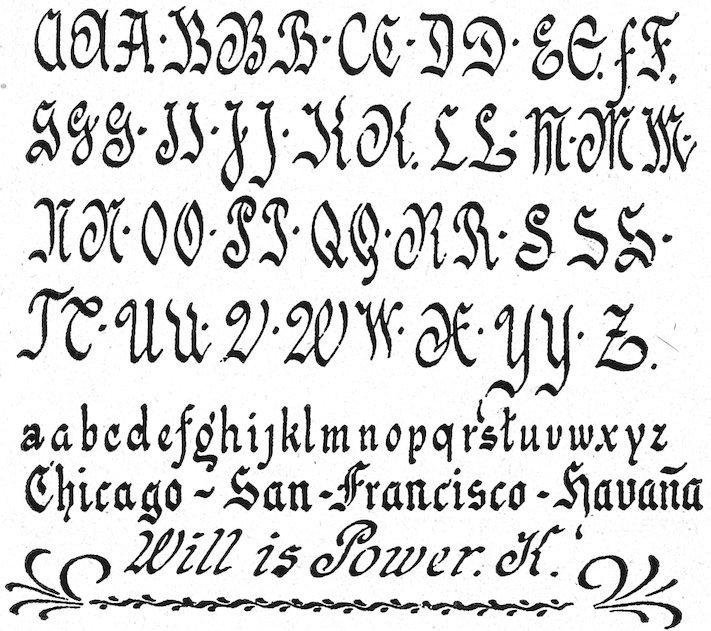 AAA·BBB·CC·DD·EE.fF.
GGG·II·JJ·KK.LL·MMM·
NN·OO·PP·QQ·RR·SSS·
TT·UU·V·WW·X·YY·Z.
aabcdefghijklmnopqrstuvwxyz
Chicago - San-Francisco - Havaña
Will is Power. K.